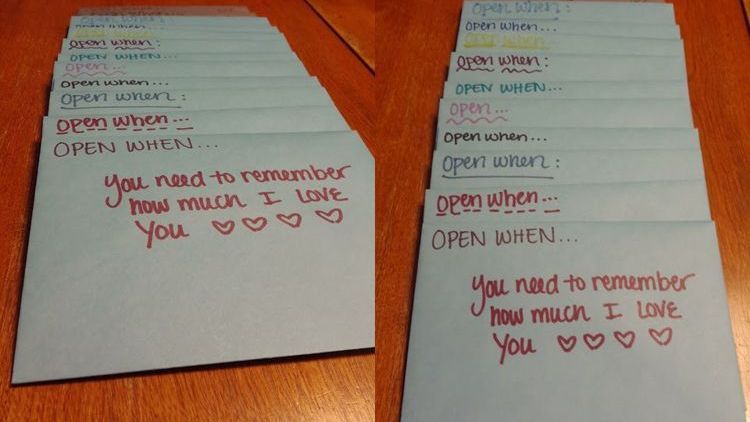 Open when:
Open when...
Open when:
OPEN WHEN...
Open...
Open when...
Open when:
Open when...
OPEN WHEN...
You need to remember
how much I LOVE
You ♡ ♡ ♡ ♡
Open when:
Open when...
Open when:
OPEN WHEN...
Open...
Open when...
Open when:
Open when...
OPEN WHEN...
You need to remember
how much I LOVE
You ♡ ♡ ♡ ♡